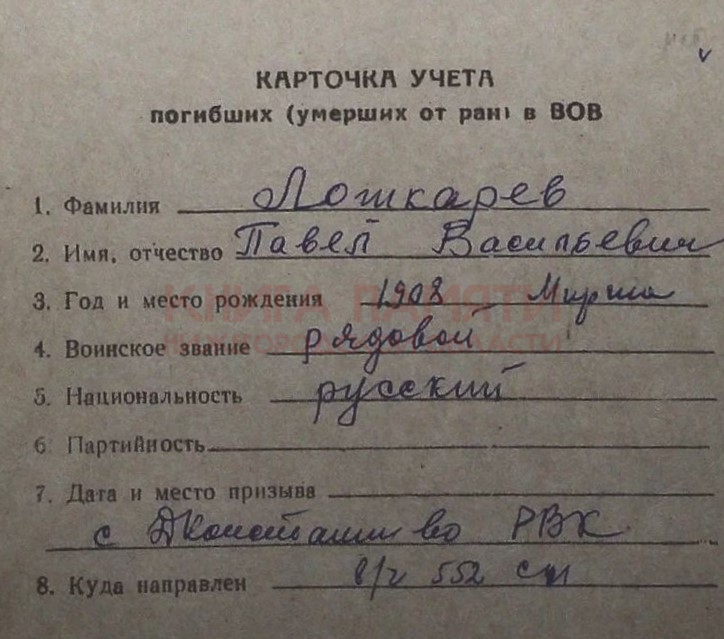 КАРТОЧКА УЧЕТА
погибших (умерших от ран) в ВОВ
1. Фамилия Лошкарев
2. Имя, отчество Павел Васильевич
3. Год и место рождения 1908
4. Воинское звание рядовой
5. Национальность русский
6. Партийность
7. Дата и место призыва
с РВК
8. Куда направлен в/ч 552 сп
КНИГА ПАМЯТИ
НИЖЕГОРОДСКОЙ ОБЛАСТИ